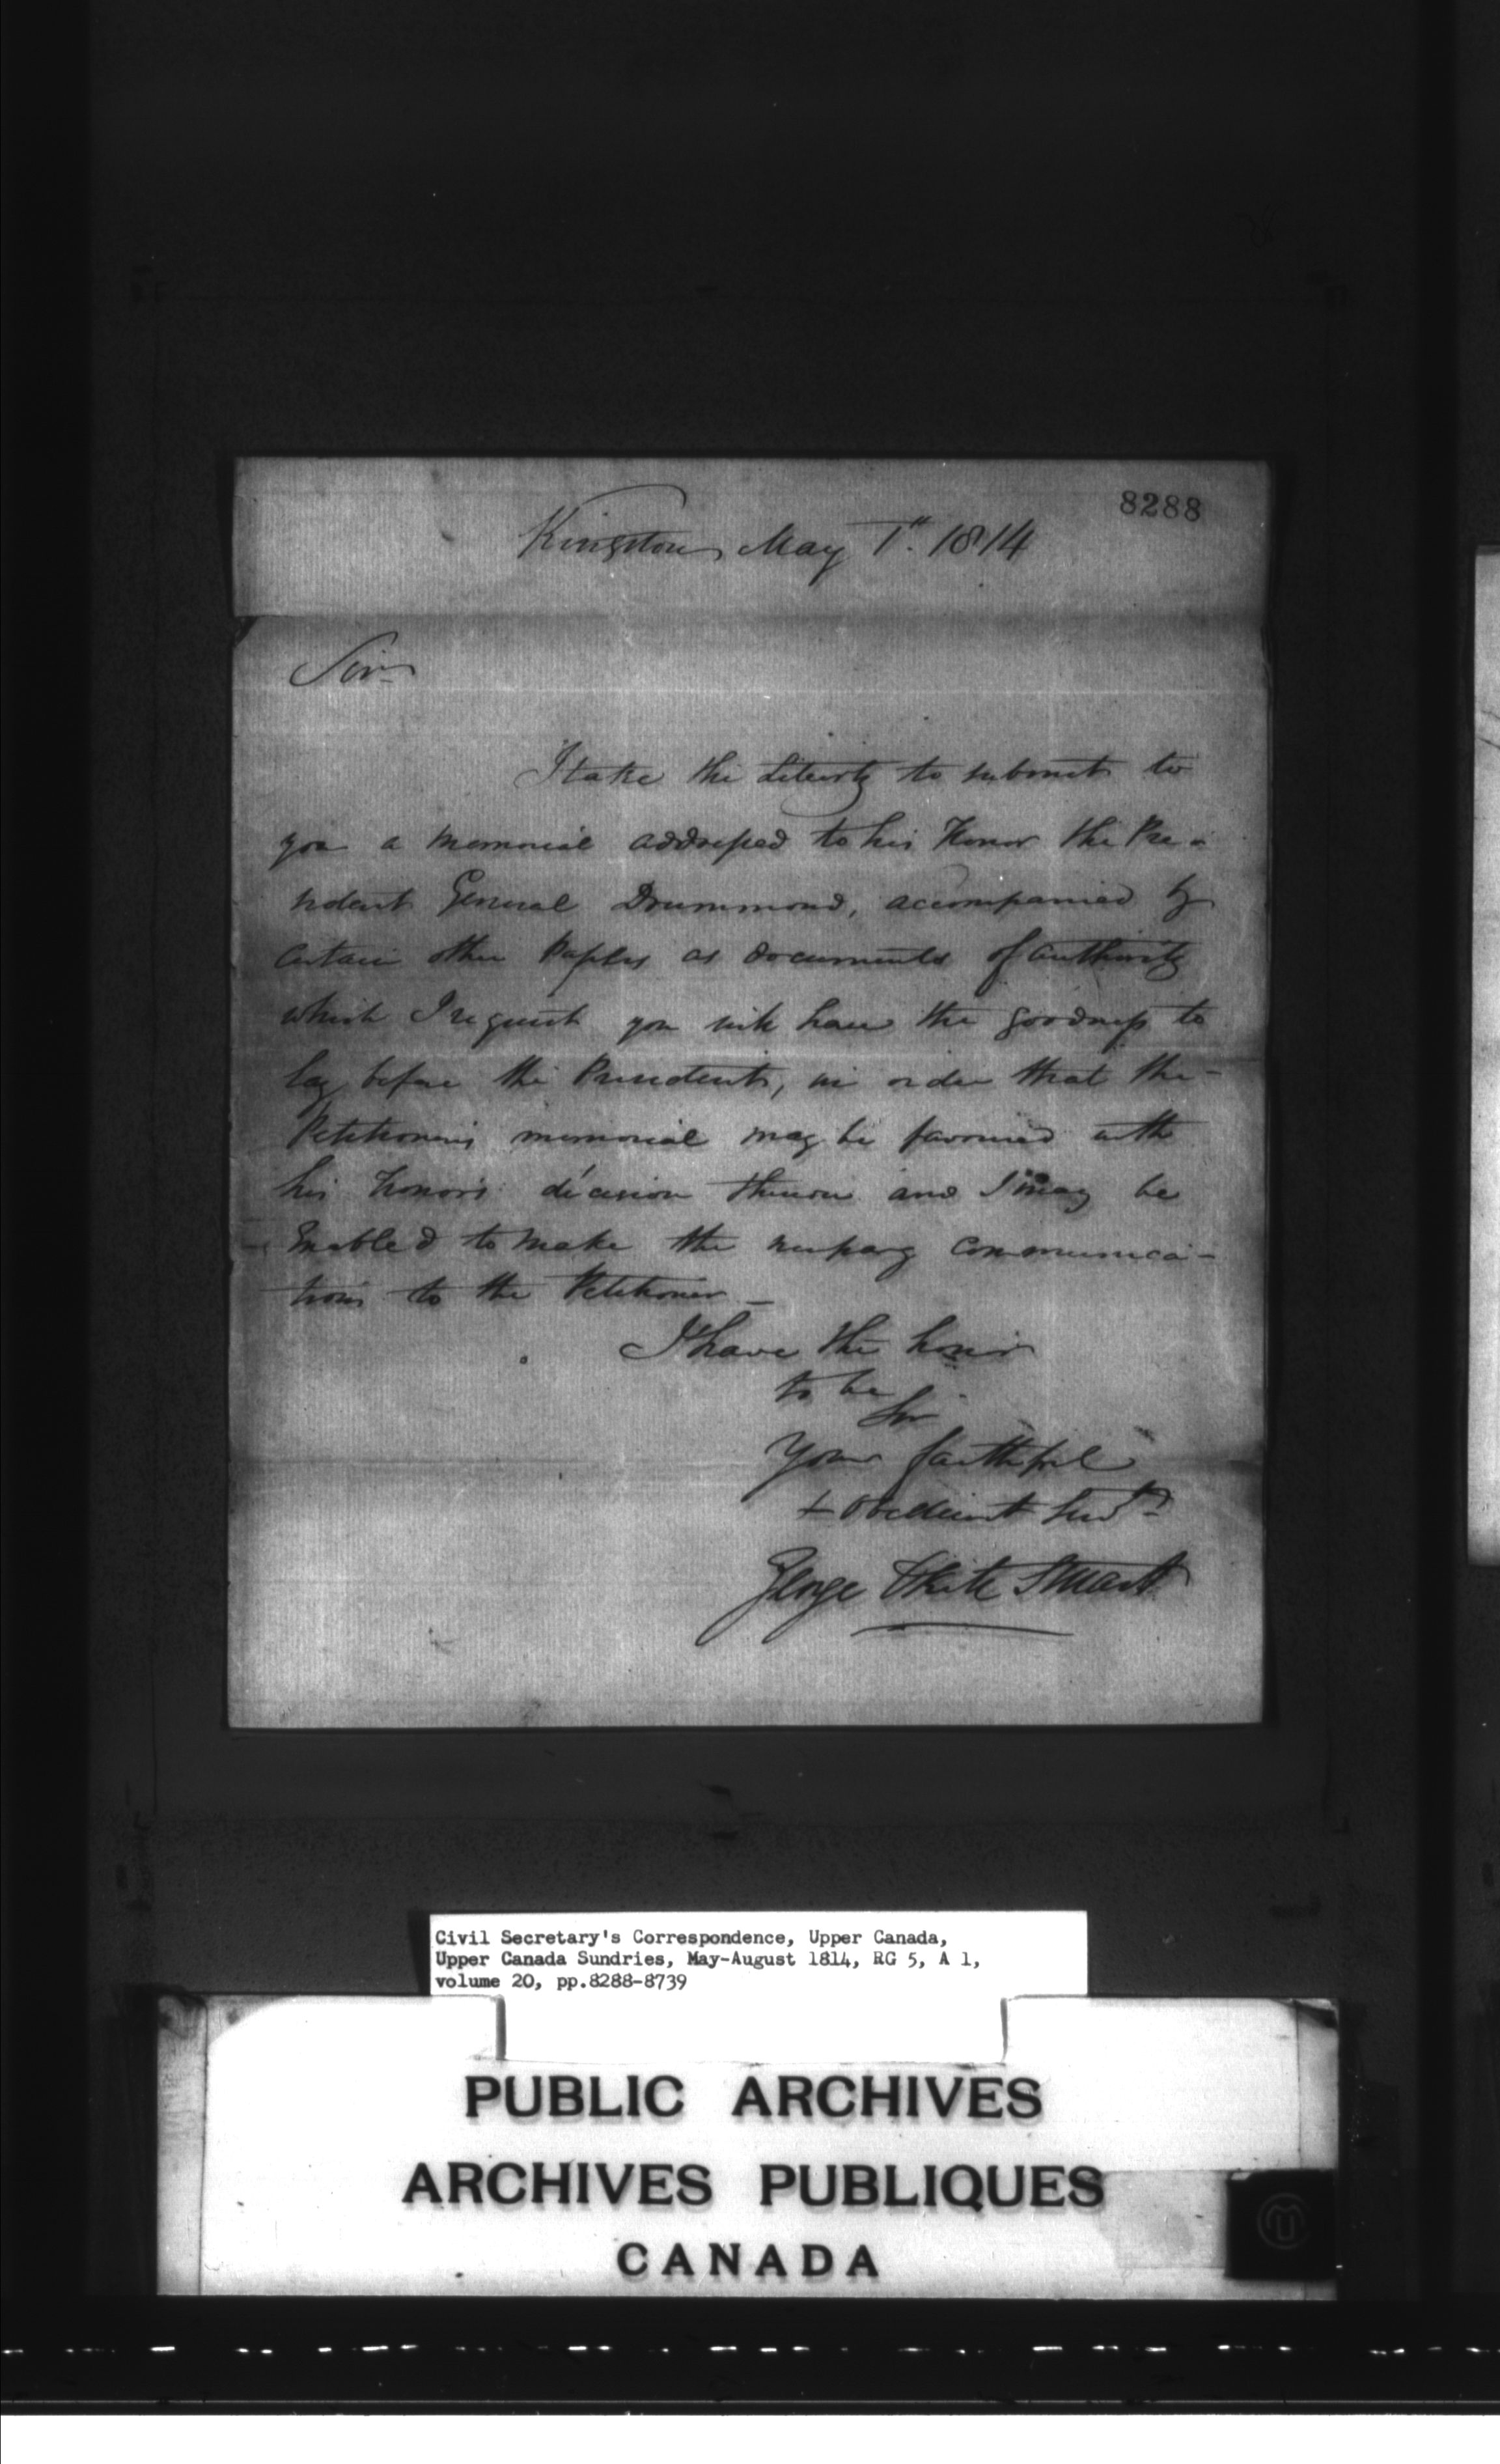 8288
Kingston May 1st. 1814
Sir
I take the Liberty to submit to
you a memorial addressed to his Honor the Pre-
sident General Drummond, accompanied by
certain other Papers as documents of authority
which I request you will have the goodness to
lay before the President, in order that the
Petitioners memorial may be favoured with
his honors decision thereon and I may be
Enabled to make the necessary communica-
tions to the Petitioner
I have the honor
to be
Sir
Your faithful
+ obedient Servt
George Stuart
Civil Secretary's Correspondence, Upper Canada,
Upper Canada Sundries, May-August 1814, RG 5, A 1,
volume 20, pp.8288-8739
PUBLIC ARCHIVES
ARCHIVES PUBLIQUES
CANADA